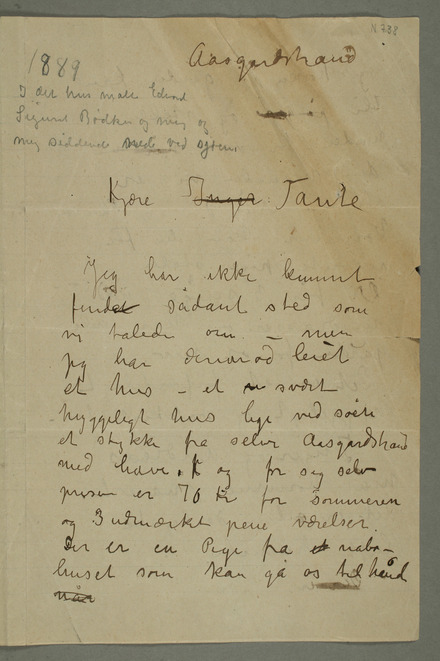 N 788
1889
Aasgardstrand
I det hus malte Edvard
Sigurd Bødtker og mig og
mig siddende ved sjøen
Kjære Inger Tante
Jeg har ikke kunnet
finde sådant sted som
vi talede om – men
jeg har derimod leiet
et hus – et svært
hyggeligt hus lige ved søen
et stykke fra selve Aasgardstrand
med have, og for sig selv
prisen er 70 kr for sommeren
og 3 udmærket pene værelser.
Der er en Pige fra nabo-
huset som kan gå os til hånd
når